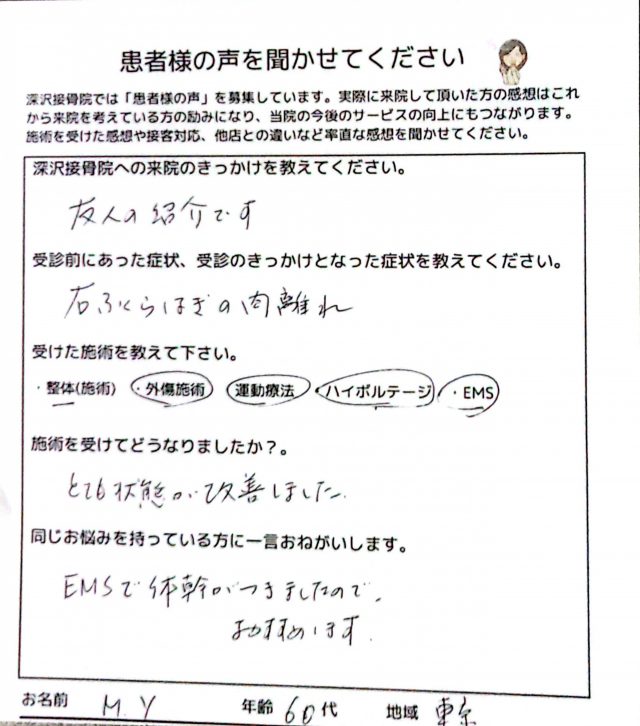 患者様の声を聞かせてください
深沢接骨院では「患者様の声」を募集しています。実際に来院して頂いた方の感想はこれ
から来院を考えている方の励みになり、当院の今後のサービスの向上にもつながります。
施術を受けた感想や接客対応、他店との違いなど率直な感想を聞かせてください。
深沢接骨院への来院のきっかけを教えてください。
友人の紹介です
受診前にあった症状、受診のきっかけとなった症状を教えてください。
右ふくらはぎの肉離れ
受けた施術を教えて下さい。
・整体(施術) ・外傷施術 運動療法 ・ハイボルテージ ・EMS
施術を受けてどうなりましたか？。
とても状態が改善しました.
同じお悩みを持っている方に一言おねがいします。
EMSで体幹がつきましたので、
おすすめします.
お名前 M Y 年齢 60代 地域 東京